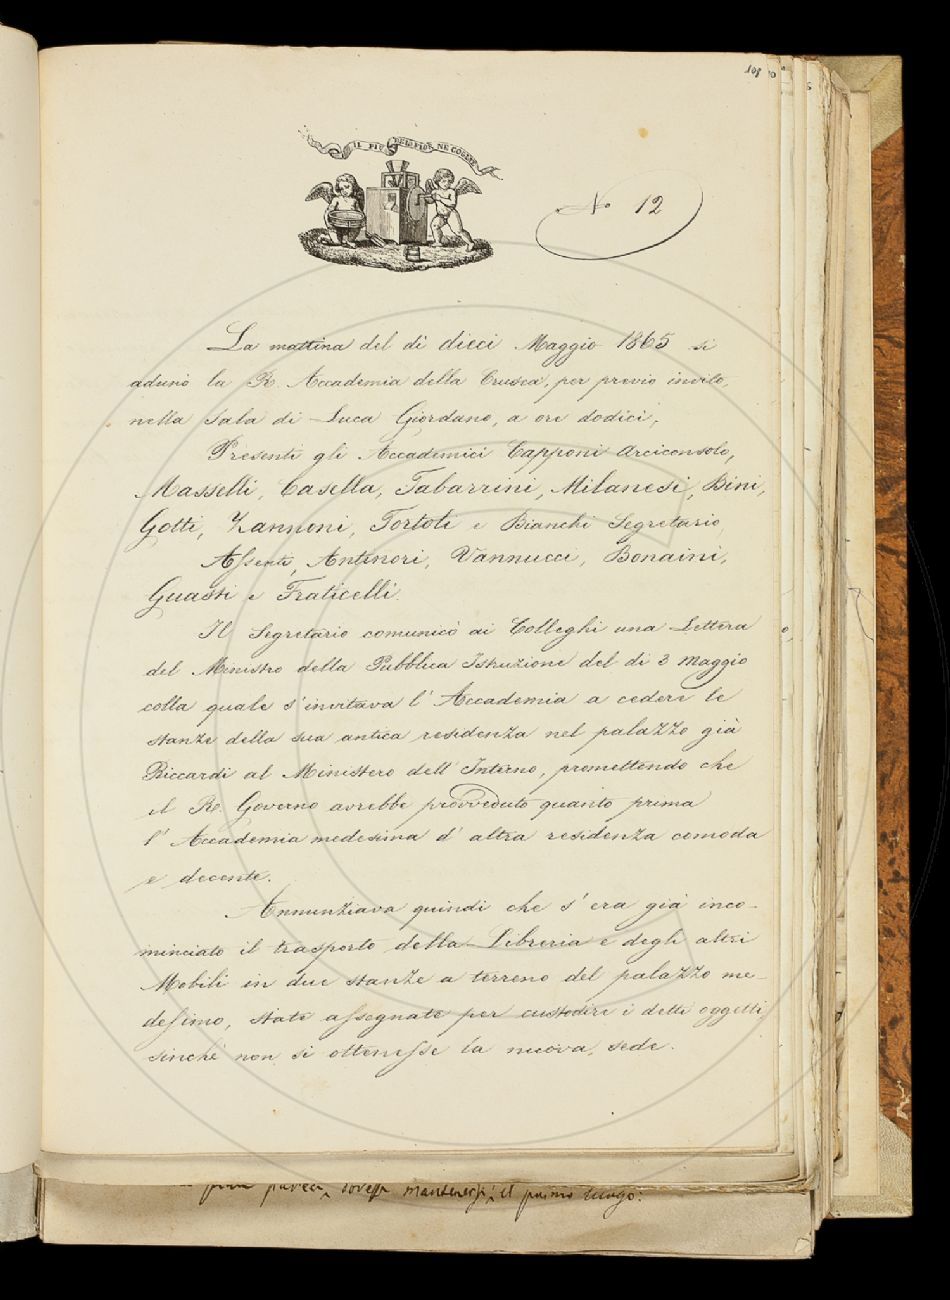 108
IL PIÙ BEL FIOR NE COGLIE
No 12
La mattina del dì dieci Maggio 1865 si
adunò la R. Accademia della Crusca, per previo invito,
nella Sala di Luca Giordano, a ore dodici,
Presenti gli Accademici Capponi Arciconsolo,
Masselli, Casella, Tabarrini, Milanesi, Bini,
Gotti, Zannoni, Tortoli e Bianchi Segretario
Assenti, Antinori, Vannucci, Bonaini,
Guasti e Fraticelli.
Il Segretario comunicò ai Colleghi una Lettera
del Ministro della Pubblica Istruzione del di 3 maggio
colla quale s'invitava l'Accademia a cedere le
stanze della sua antica residenza nel palazzo già
Riccardi al Ministero dell'Interno, promettendo che
il R. Governo avrebbe provveduto quanto prima
l'Accademia medesima d'altra residenza comoda
e decente.
Annunziava quindi che s'era già inco-
minciato il trasporto della Libreria e degli altri
Mobili in due stanze a terreno del palazzo me-
desimo, state assegnate per custodire i detti oggetti,
sinchè non si ottenesse la nuova sede.
mantenersi il primo luogo: